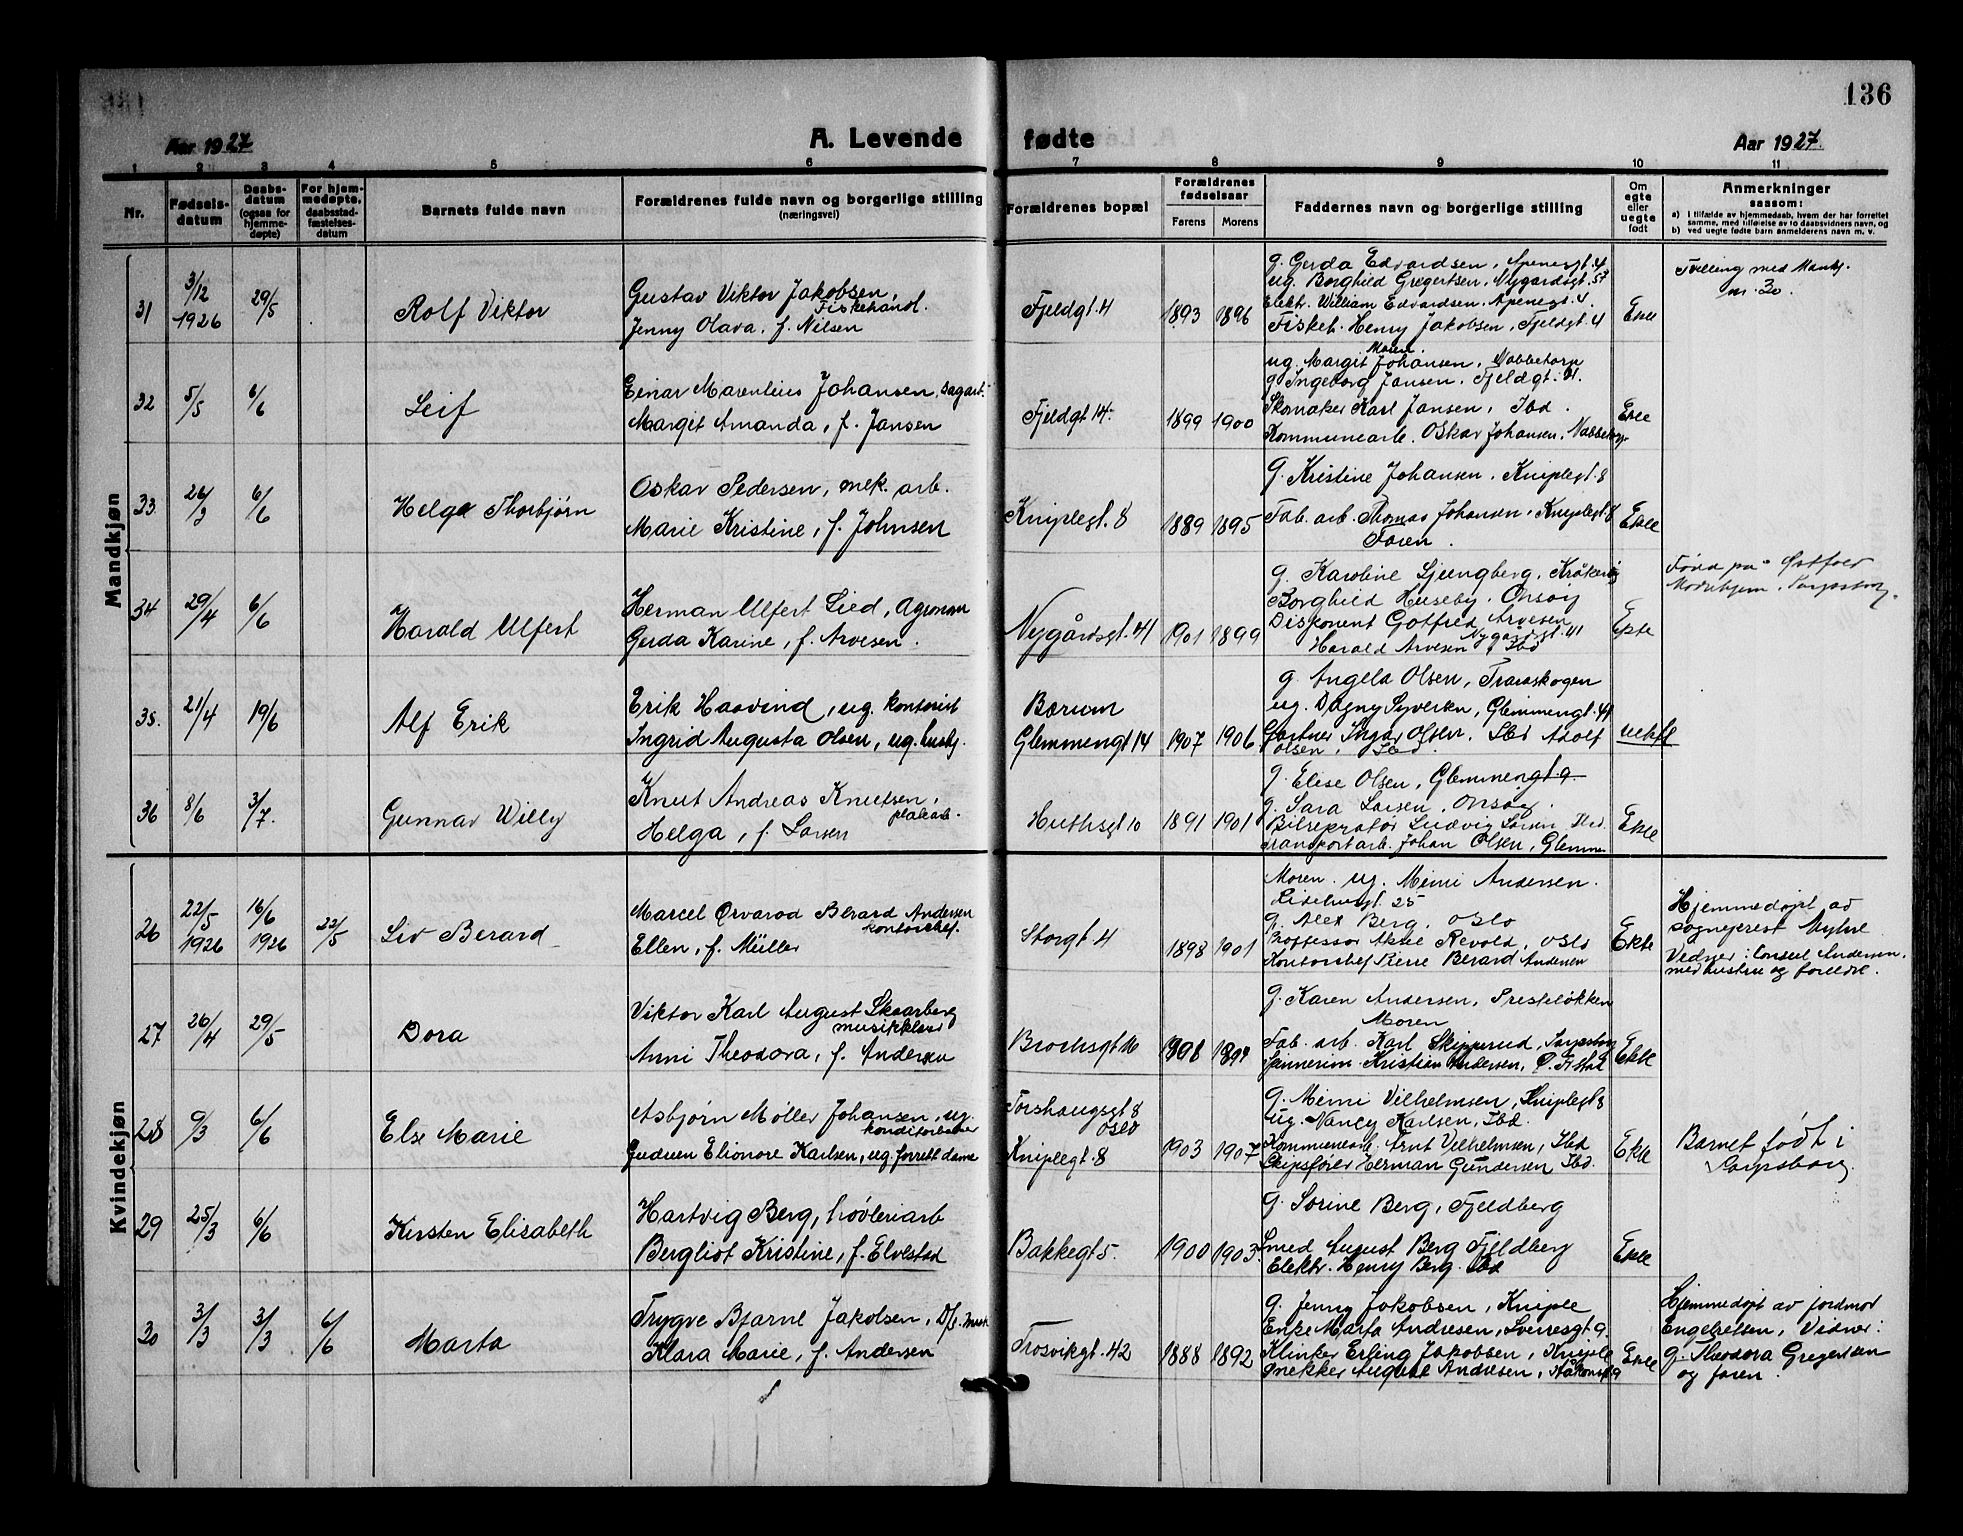 136
Aar 1927
A. Levende fødte
Aar 1927.
1 2 3 4 5 6 7 8 9 10 11
Nr.
Fødsels-
datum
Daabs-
datum
(ogsaa for
hjemme-
døpte)
For hjem-
medøpte,
daabsstad-
fæstelses-
datum
Barnets fulde navn
Forældrenes fulde navn og borgerlige stilling
(næringsvei)
Forældrenes bopæl
Forældrenes
fødselsaar
Farens Morens
Faddernes navn og borgerlige stilling
Om
egte
eller
uegte
født
Anmerkninger
saasom:
a) I tilfælde av hjemmedaab, hvem der har forrettet
samme, med tilføielse av to daabsvidners navn, og
b) ved uegte fødte barn anmelderens navn m. v.
Mandkjøn
31
3/12
1926
29/5
Rolf Viktor
Gustav Viktor Jakobsen,
Fiskehandl.
Jenny Olava, f. Nilsen
Fjeldgt. 4
1893 1896
g. Gerda Edvardsen, Apenesgt. 4
ug. Borghild Gregertsen, Nygaardsgt. 53
Elektr. William Edvardsen, Apenegt. 4
Fiskeh. Henry Jakobsen, Fjeldgt. 4
Ekte
Tvilling med Mankj.
nr. 30
32
5/5
6/6
Leif
Einar Marentius Johansen, sagarb.
Margit Amanda, f. Jansen
Fjeldgt 14
1899 1900
Moren.
ug. Margit Johansen, Nabbetorp
g. Ingeborg Jansen, Fjeldgt. 21.
Skomaker Karl Jansen, Ibd.
Kommunearb. Oskar Johansen, Nabbetorp
Ekte
33
26/3
6/6
Helge Thorbjørn
Oskar Pedersen, mek. arb.
Marie Kristine, f. Johnsen
Kniplegt. 8
1889 1895
g. Kristine Johansen, Kniplegt. 8
Fab. arb. Thomas Johansen, Kniplegt. 8
Faren.
Ekte
34
29/4
6/6
Harald Ulfert
Herman Ulfert Lied, Agronom
Gerda Karine, f. Arvesen.
Nygårdsgt. 41
1901 1899
g. Karoline Ljungberg, Kråkerøy
Borghild Huseby, Onsøy
Disponent Gotfred Arvesen
Nygårdsgt. 41
Harald Arvesen, Ibd
Ekte
Født på Østfold
Mødrehjem, Sarpsborg.
35.
21/4
19/6
Alf Erik
Erik Haavind, ug. kontorist
Ingrid Augusta Olsen, ug. hushj.
Bærum
Glemmengt 14
1907 1906
g. Angela Olsen, Traraskogen
ug. Dagny Syversen, Glemmengt. 41
Gartner Ingar Olsen, Ibd Adolf
Olsen, Ibd.
uekte
36
8/6
3/7.
Gunnar Willy
Knut Andreas Knutsen,
platearb.
Helga, f. Larsen
Huthsgt 10
1891 1901
g. Elise Olsen, Glemmengt. 9
g. Sara Larsen, Onsøy.
Bilreparatør Ludvig Larsen Ibd.
Transportarb. Johan Olsen, Glemmen
Ekte
Kvindekjøn
26
22/5
1926
16/6
1926
22/5
Liv Berard
Marcel Ørvarod Berard Andersen
kontorchef.
Ellen, f. Müller
Storgt 4
1898 1901
Moren. ug. Mimi Andersen.
25
g. Alex Berg, Oslo
Professor Aksel Revold, Oslo
Kontorchef Pierre Berard Andersen
Ekte
Hjemmedøpt av
sogneprest Myhre
Vidner: Consul Andersen,
med hustru og foreldre.
27
26/4
29/5
Dora
Viktor Karl August Skaarberg
musikklærer
Anni Theodora, f. Andersen
Brochsgt 16
1898 1894
g. Karen Andersen, Presteløkken
Moren
Fab. arb. Karl Skipperud, Sarpsborg
Kristian Andersen, Ø. F.stad
Ekte
28
9/3
6/6
Else Marie
Asbjørn Møller Johansen, ug.
konditorbaker
Gudrun Elionore Karlsen, ug. forrett.dame
Torshaugsgt 8
Oslo
Kniplegt. 8
1903 1907
g. Mimi Vilhelmsen, Kniplegt 8
ug. Nancy Karlsen, Ibd.
Kommunearb. Arnt Vilhelmsen, Ibd
Skipsfører Herman Gundersen Ibd.
Ekte
Barnet født i
Sarpsborg.
29
25/3
6/6
Kirsten Elisabeth
Hartvig Berg, høvleriarb
Bergliot Kristine, f. Elvestad
Bakkegt 5.
1900 1903.
g. Sorine Berg, Fjeldberg
Smed August Berg Fjeldberg
Elektr. Henry Berg. Ibd
Ekte
30
3/3
3/3
6/6
Marta
Trygve Bjarne Jakobsen, D/s. mask
Klara Marie, f. Andersen
Trosvikgt. 42
1888 1892
g. Jenny Jakobsen, Kniple
Enke Marta Andresen, Sverresgt 9.
Klinker Erling Jakobsen, Kniple
Snekker August Andresen, Håkonsgt 9
Ekte
Hjemmedøpt av jordmor
Engebretsen, Vidner:
g. Theodora Gregersen
og faren.